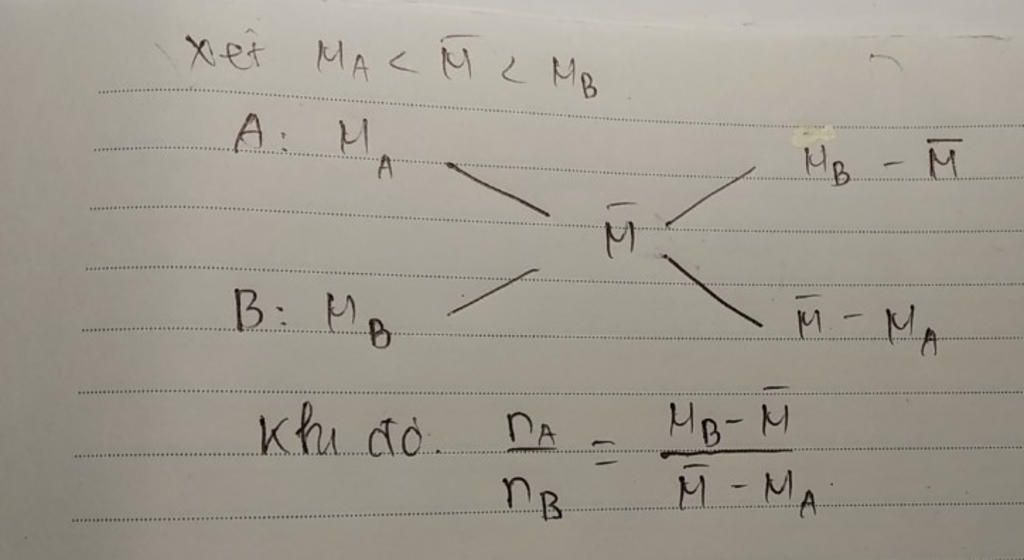 Xét M_A < M̄ < M_B
A: M_A M_B - M̄
M̄
B: M_B M̄ - M_A
Khi đó. n_A / n_B = (M_B - M̄) / (M̄ - M_A)